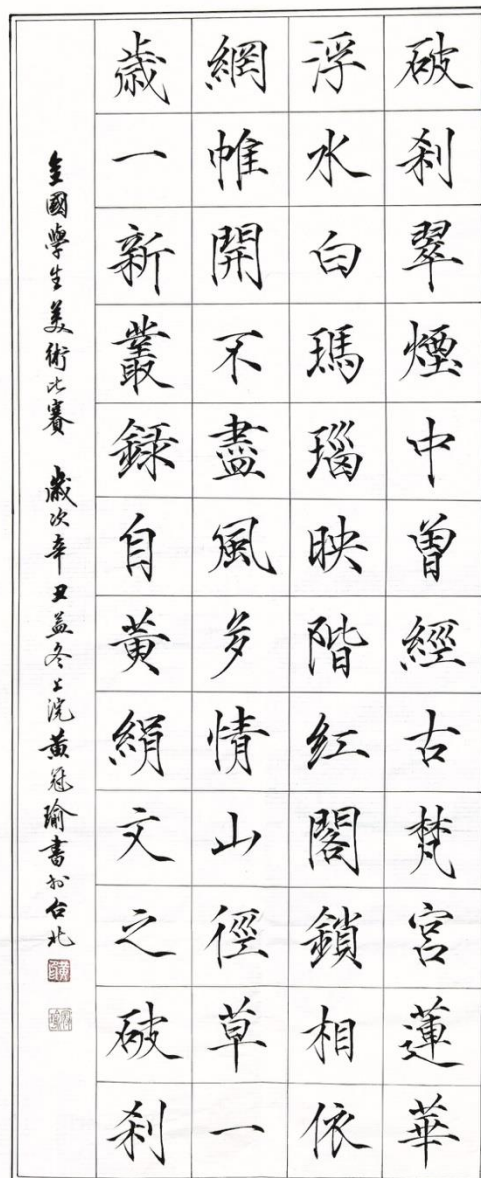 破剎翠煙中曾經古梵宮蓮華
浮水白瑪瑙映階紅閣鎖相依
網帷開不盡風多情山徑草一
歲一新叢錄自黃絹文之破剎
全國學生美術比賽 歲次辛丑孟冬上浣黃冠瑜書於台北